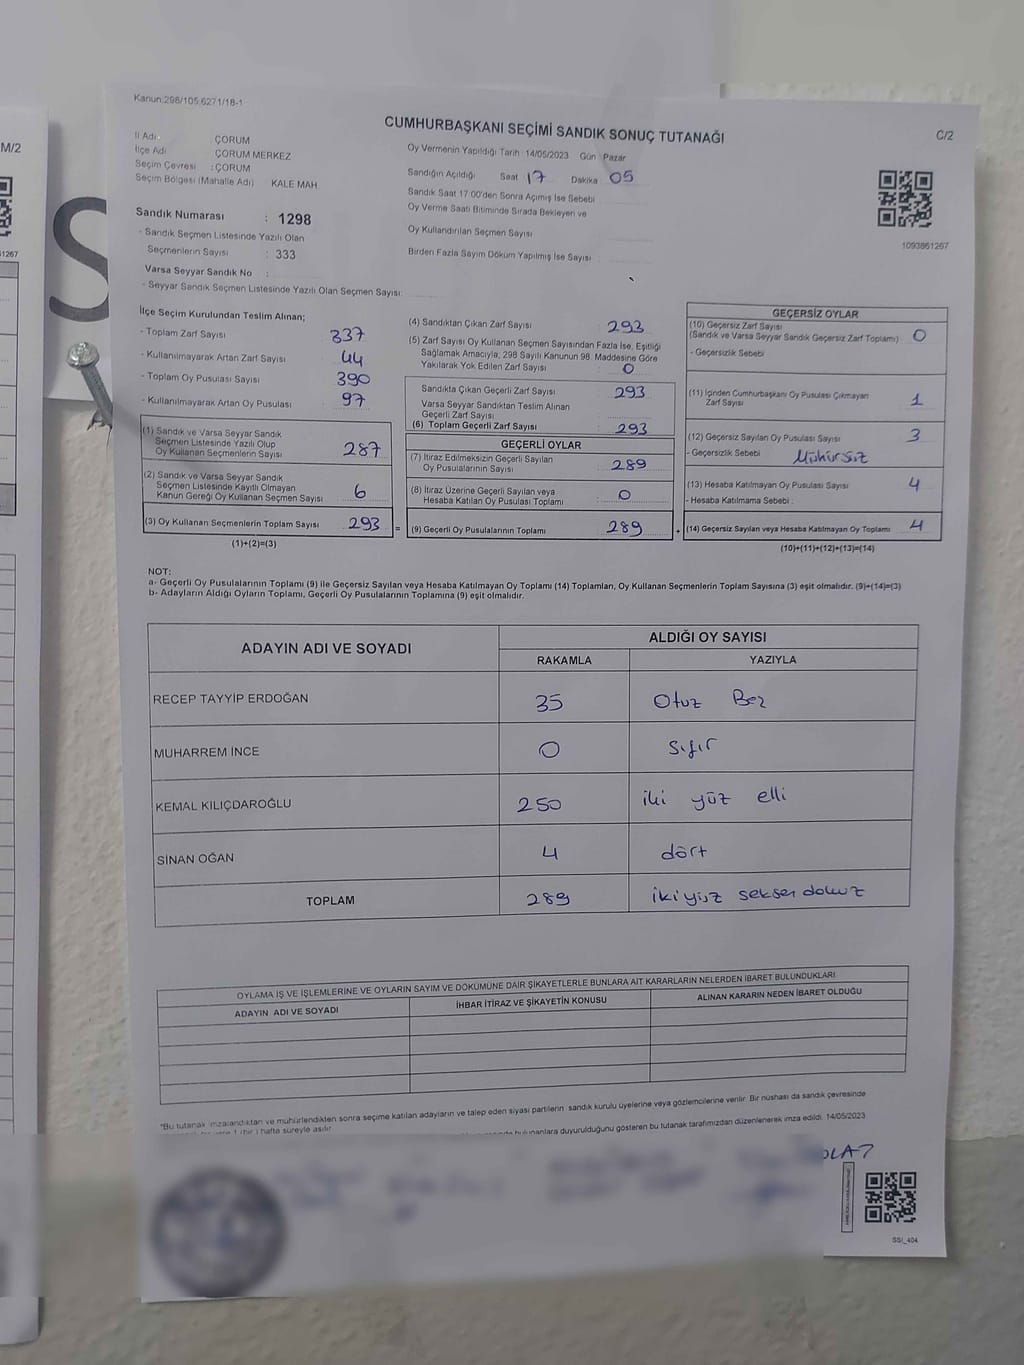 Kanun:298/105,6271/18-1
CUMHURBAŞKANI SEÇİMİ SANDIK SONUÇ TUTANAĞI
C/2
M/2
İl Adı : ÇORUM
İlçe Adı : ÇORUM MERKEZ
Seçim Çevresi : ÇORUM
Seçim Bölgesi (Mahalle Adı) KALE MAH.
Oy Vermenin Yapıldığı Tarih :14/05/2023 Gün : Pazar
Sandığın Açıldığı Saat 17 Dakika 05
Sandık Saat 17:00'den Sonra Açılmış İse Sebebi
Oy Verme Saati Bitiminde Sırada Bekleyen ve
Oy Kullandırılan Seçmen Sayısı
Birden Fazla Sayım Döküm Yapılmış İse Sayısı :
1093861267
Sandık Numarası : 1298
- Sandık Seçmen Listesinde Yazılı Olan
Seçmenlerin Sayısı : 333
Varsa Seyyar Sandık No :
- Seyyar Sandık Seçmen Listesinde Yazılı Olan Seçmen Sayısı:
İlçe Seçim Kurulundan Teslim Alınan;
- Toplam Zarf Sayısı 337
- Kullanılmayarak Artan Zarf Sayısı : 44
- Toplam Oy Pusulası Sayısı : 390
- Kullanılmayarak Artan Oy Pusulası : 97
(1) Sandık ve Varsa Seyyar Sandık
Seçmen Listesinde Yazılı Olup
Oy Kullanan Seçmenlerin Sayısı : 287
(2) Sandık ve Varsa Seyyar Sandık
Seçmen Listesinde Kayıtlı Olmayan
Kanun Gereği Oy Kullanan Seçmen Sayısı : 6
(3) Oy Kullanan Seçmenlerin Toplam Sayısı : 293 =
(1)+(2)=(3)
(4) Sandıktan Çıkan Zarf Sayısı : 293
(5) Zarf Sayısı Oy Kullanan Seçmen Sayısından Fazla İse, Eşitliği
Sağlamak Amacıyla, 298 Sayılı Kanunun 98. Maddesine Göre
Yakılarak Yok Edilen Zarf Sayısı : 0
Sandıkta Çıkan Geçerli Zarf Sayısı : 293
Varsa Seyyar Sandıktan Teslim Alınan
Geçerli Zarf Sayısı :
(6) Toplam Geçerli Zarf Sayısı : 293
GEÇERLİ OYLAR
(7) İtiraz Edilmeksizin Geçerli Sayılan
Oy Pusulalarının Sayısı : 289
(8) İtiraz Üzerine Geçerli Sayılan veya
Hesaba Katılan Oy Pusulası Toplamı : 0
(9) Geçerli Oy Pusulalarının Toplamı : 289 +
GEÇERSİZ OYLAR
(10) Geçersiz Zarf Sayısı
(Sandık ve Varsa Seyyar Sandık Geçersiz Zarf Toplamı) : 0
- Geçersizlik Sebebi
(11) İçinden Cumhurbaşkanı Oy Pusulası Çıkmayan
Zarf Sayısı : 1
(12) Geçersiz Sayılan Oy Pusulası Sayısı : 3
- Geçersizlik Sebebi Mühürsüz
(13) Hesaba Katılmayan Oy Pusulası Sayısı : 4
- Hesaba Katılmama Sebebi :
(14) Geçersiz Sayılan veya Hesaba Katılmayan Oy Toplamı : 4
(10)+(11)+(12)+(13)=(14)
NOT:
a- Geçerli Oy Pusulalarının Toplamı (9) ile Geçersiz Sayılan veya Hesaba Katılmayan Oy Toplamı (14) Toplamları, Oy Kullanan Seçmenlerin Toplam Sayısına (3) eşit olmalıdır. (9)+(14)=(3)
b- Adayların Aldığı Oyların Toplamı, Geçerli Oy Pusulalarının Toplamına (9) eşit olmalıdır.
ADAYIN ADI VE SOYADI ALDIĞI OY SAYISI
RAKAMLA YAZIYLA
RECEP TAYYİP ERDOĞAN 35 Otuz Beş
MUHARREM İNCE 0 Sıfır
KEMAL KILIÇDAROĞLU 250 iki yüz elli
SİNAN OĞAN 4 dört
TOPLAM 289 iki yüz seksen dokuz
OYLAMA İŞ VE İŞLEMLERİNE VE OYLARIN SAYIM VE DÖKÜMÜNE DAİR ŞİKAYETLERLE BUNLARA AİT KARARLARIN NELERDEN İBARET BULUNDUKLARI
ADAYIN ADI VE SOYADI İHBAR İTİRAZ VE ŞİKAYETİN KONUSU ALINAN KARARIN NEDEN İBARET OLDUĞU
"Bu tutanak imzalandıktan ve mühürlendikten sonra seçime katılan adayların ve talep eden siyasi partilerin sandık kurulu üyelerine veya gözlemcilerine verilir. Bir nüshası da sandık çevresinde
1 (bir) hafta süreyle asılır. bulunanlara duyurulduğunu gösteren bu tutanak tarafımızdan düzenlenerek imza edildi. 14/05/2023
SSI_404